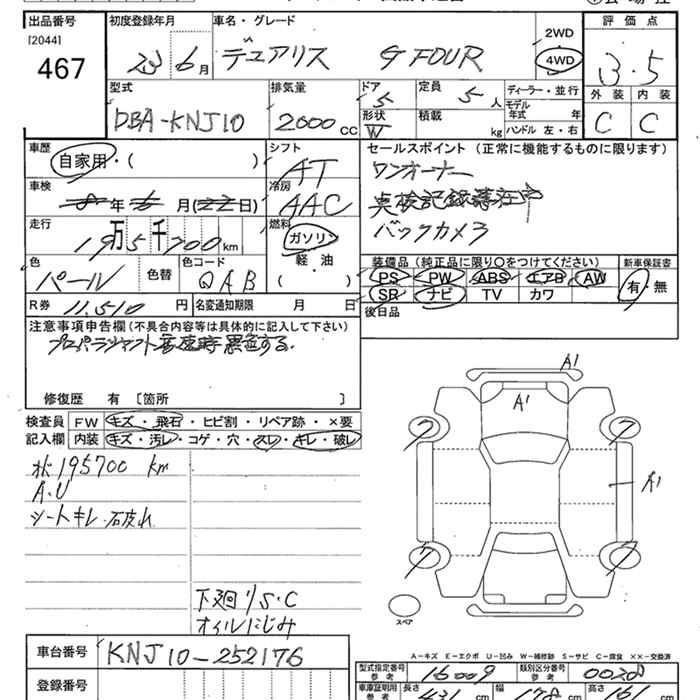 出品番号 初度登録年月 車名・グレード 評価点
[2044]
467
23 年 6月 デュアリス G FOUR 2WD 4WD 3.5
型式 排気量 ドア 定員 ディーラー・並行 外装 内装
DBA-KNJ10 2000cc 5 5人 モデル年式 年 C C
形状 W 積載 kg ハンドル 左・右
車歴 シフト セールスポイント(正常に機能するものに限ります)
自家用・( ) AT ワンオーナー
車検 冷房 点検記録簿
年 月 日) AAC バックカメラ
走行 燃料
19万5千700km ガソリン 装備品(純正品に限り○をつけてください) 新車保証書
色 色替 色コード 軽・油 PS PW ABS エアB AW 有・無
パール QAB ( ) SR ナビ TV カワ
R券 11,510円 名変通知期限 月 日 後日品
注意事項申告欄(不具合内容等は具体的に記入して下さい)
プロペラシャフト
修復歴 有 [箇所 ]
検査員 FW キズ・飛石・ヒビ割・リペア跡・×要
記入欄 内装 キズ・汚レ・コゲ・穴・スレ・キレ・破レ
A1
A1
A1
ワ ワ
ワ ワ
スペア
195700 km
A.U
シートキレ・破れ
下廻り S・C
オイルにじみ
A-キズ E-エクボ U-凹み W-補修跡 S-サビ C-腐食 XX-交換済
車台番号 KNJ10-252176
型式指定番号 参考 16009 類別区分番号 参考
登録番号 車庫証明用 参考 長さ 431cm 幅 178cm 高さ 161cm